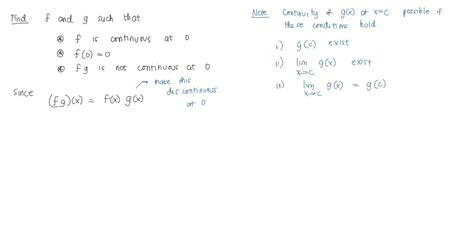 Find f and g such that
* f is continuous at 0
* f(0) = 0
* fg is not continuous at 0
Since (fg)(x) = f(x) g(x)
make this
discontinuous
at 0
Note: Continuity of g(x) at x=c possible if
these conditions hold
i) g(c) exist
ii) lim x→c g(x) exist
iii) lim x→c g(x) = g(c)